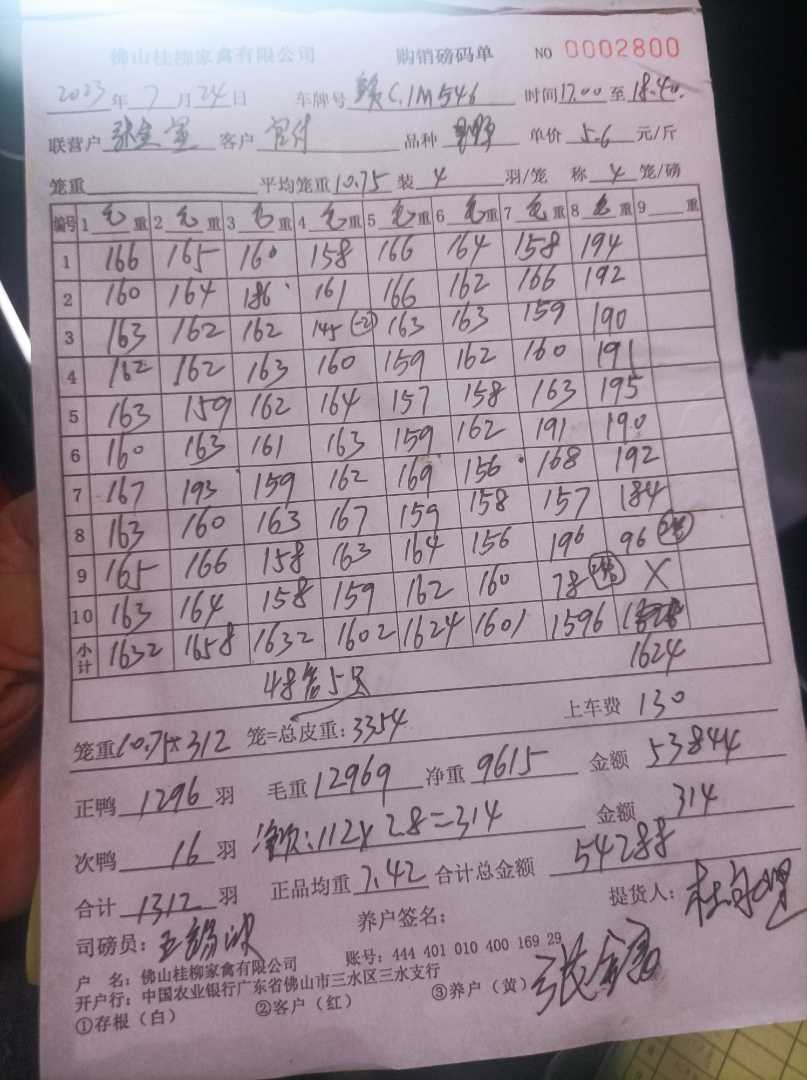 佛山桂柳家禽有限公司 购销磅码单 NO 0002800
2023年7月24日 车牌号 赣C.1M546 时间17.00至18.40.
联营户 客户 品种 单价 5.6 元/斤
笼重 平均笼重10.75 装 4 羽/笼 称 4 笼/磅
编号 1 毛重 2 毛重 3 毛重 4 毛重 5 毛重 6 毛重 7 毛重 8 毛重 9 重
1 166 165 160 158 166 164 158 194
2 160 164 186 161 166 162 166 192
3 163 162 162 145 (-2) 163 163 159 190
4 162 162 163 160 159 162 160 191
5 163 159 162 164 157 158 163 195
6 160 163 161 163 159 162 191 190
7 167 193 159 162 169 156 168 192
8 163 160 163 167 159 158 157 184
9 165 166 158 163 164 156 196 96
10 163 164 158 159 162 160 78 X
小计 1632 1658 1632 1602 1624 1601 1596
1624
48笼5只
笼重10.75×312 笼=总皮重:3354 上车费 130
正鸭 1296 羽 毛重 12969 净重 9615 金额 53844
次鸭 16 羽 :112×28=314 金额 314
合计 1312 羽 正品均重 7.42 合计总金额 54288
司磅员: 养户签名: 提货人:
户 名:佛山桂柳家禽有限公司 账号:444 401 010 400 169 29
开户行:中国农业银行广东省佛山市三水区三水支行
①存根(白) ②客户(红) ③养户(黄)